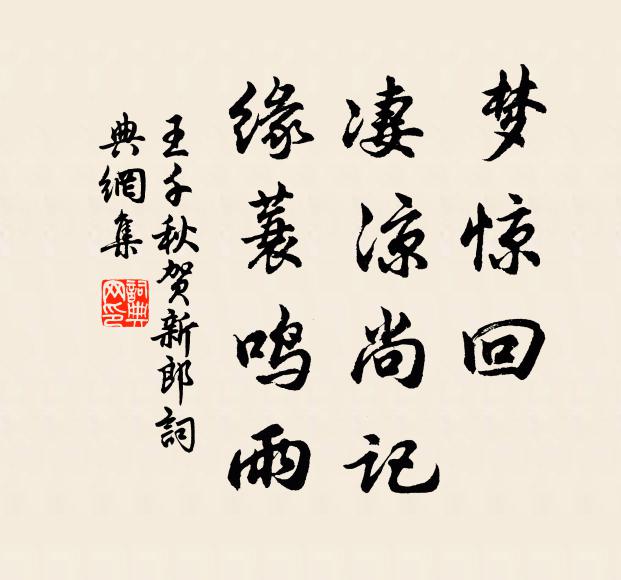 梦惊回
凄凉尚记
缘蓑鸣雨
王千秋贺新郎詞
典網集
詞典
网印